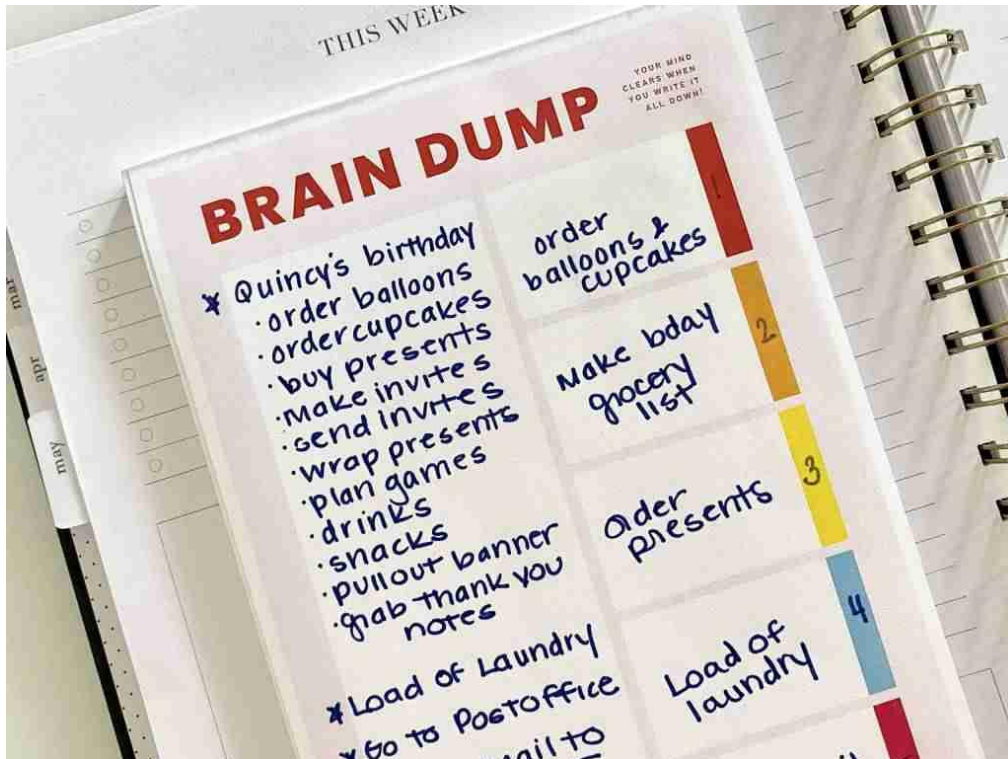 THIS WEEK
YOUR MIND
CLEARS WHEN
YOU WRITE IT
ALL DOWN!
BRAIN DUMP
* Quincy's birthday
· order balloons
· order cupcakes
· buy presents
· Make invites
· send invites
· wrap presents
· plan games
· drinks
· snacks
· pull out banner
· grab thank you
notes
* Load of Laundry
* Go to Post office
mail to
1
order
balloons &
cupcakes
2
Make bday
grocery
list
3
Order
presents
4
Load of
laundry
mar
apr
may